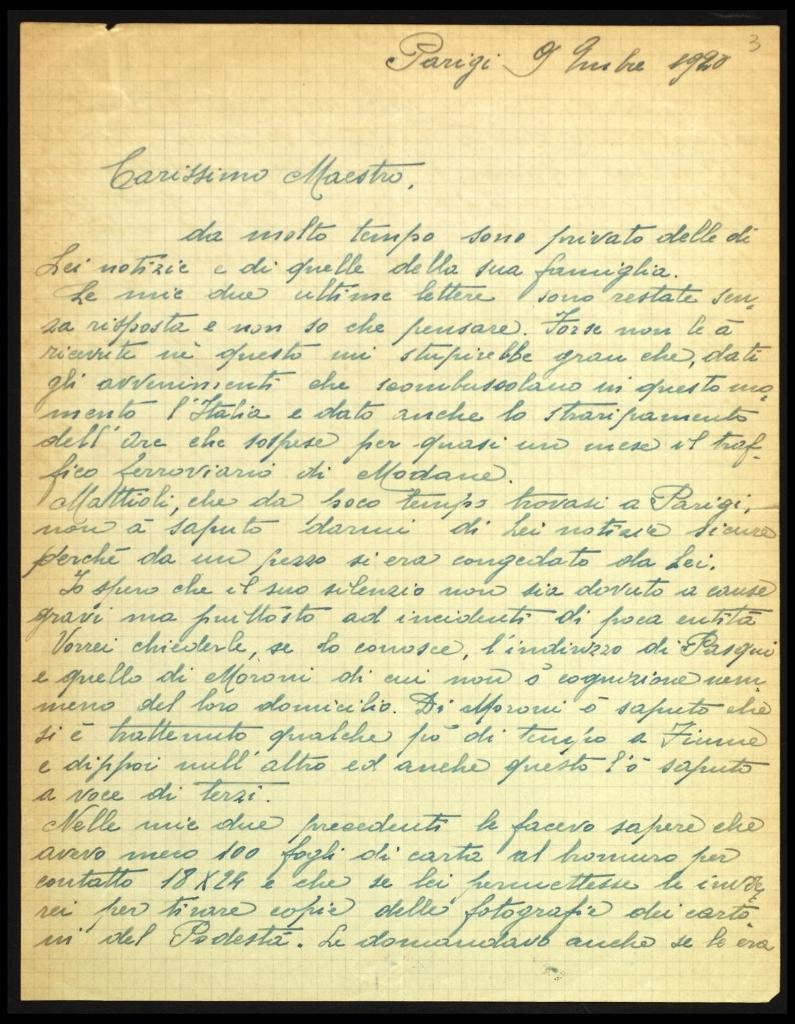 3
Parigi 9 9mbre 1920
Carissimo Maestro,
da molto tempo sono privato delle di
Lei notizie e di quelle della sua famiglia.
Le mie due ultime lettere sono restate sen-
za risposta e non so che pensare. Forse non le à
ricevute nè questo mi stupirebbe gran che, dati
gli avvenimenti che scombussolano in questo mo-
mento l'Italia e dato anche lo straripamento
dell'Arc che sospese per quasi un mese il traf-
fico ferroviario di Modane.
Mattioli, che da poco tempo trovasi a Parigi,
non à saputo darmi di Lei notizie sicure
perchè da un pezzo si era congedato da Lei.
Io spero che il suo silenzio non sia dovuto a cause
gravi ma piuttosto ad incidenti di poca entità
Vorrei chiederle, se lo conosce, l'indirizzo di Pasqui
e quello di Moroni di cui non ò cognizione nem-
meno del loro domicilio. Di Moroni ò saputo che
si è trattenuto qualche pò di tempo a Fiume
e dippoi null'altro ed anche questo l'ò saputo
a voce di terzi.
Nelle mie due precedenti le facevo sapere che
avevo meco 100 fogli di carta al bromuro per
contatto 18X24 e che se lei permettesse le invie-
rei per tirare copie delle fotografie dei carto
ni del Podestà. Le domandavo anche se le era